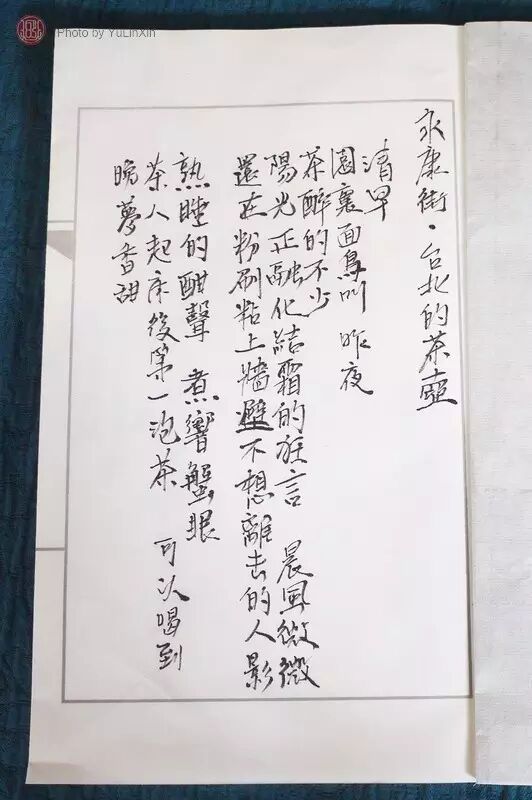 永康街·台北的茶壺
清早
園裏面鳥叫 昨夜
茶醉的不少
陽光正融化結霜的狂言 晨風微微
還在粉刷粘上牆壁不想離去的人影
熟睡的酣聲 煮響蟹眼
茶人起床後第一泡茶 可以喝到
晚夢香甜
Photo by YuLinXin